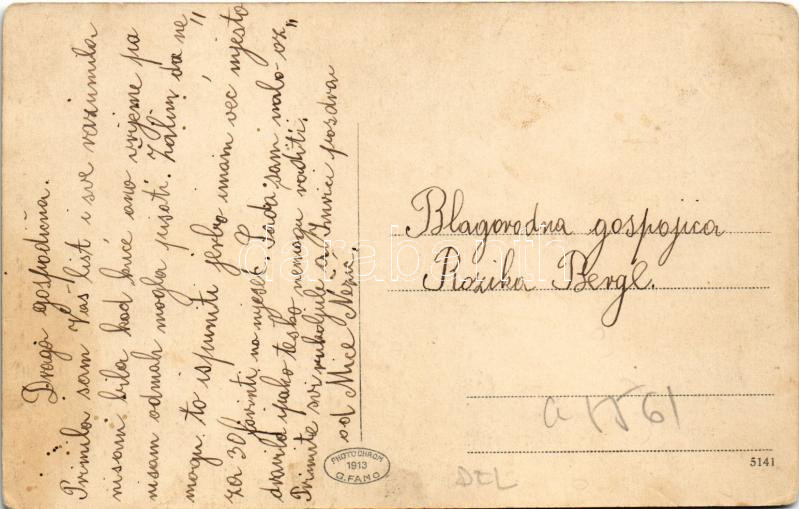 Draga gospodična.
Primila sam Vaš list i sve razumila
nisam bila kod kuće ono vrijeme pa
nisam odmah mogla pisati. Žalim da ne"
mogu to ispuniti jerbo imam već mjesto
za 30 forinti na mjesec. Sada sam malo oz"
dravila ipako teško nemogu raditi.
Primite svi rukoljub a Ivici pozdrav
od Mice Nezić.
Blagorodna gospojica
Rozika Bergl.
a 1561
DEL
PHOTOCHROM
1913
G. FANO
5141
darabanth